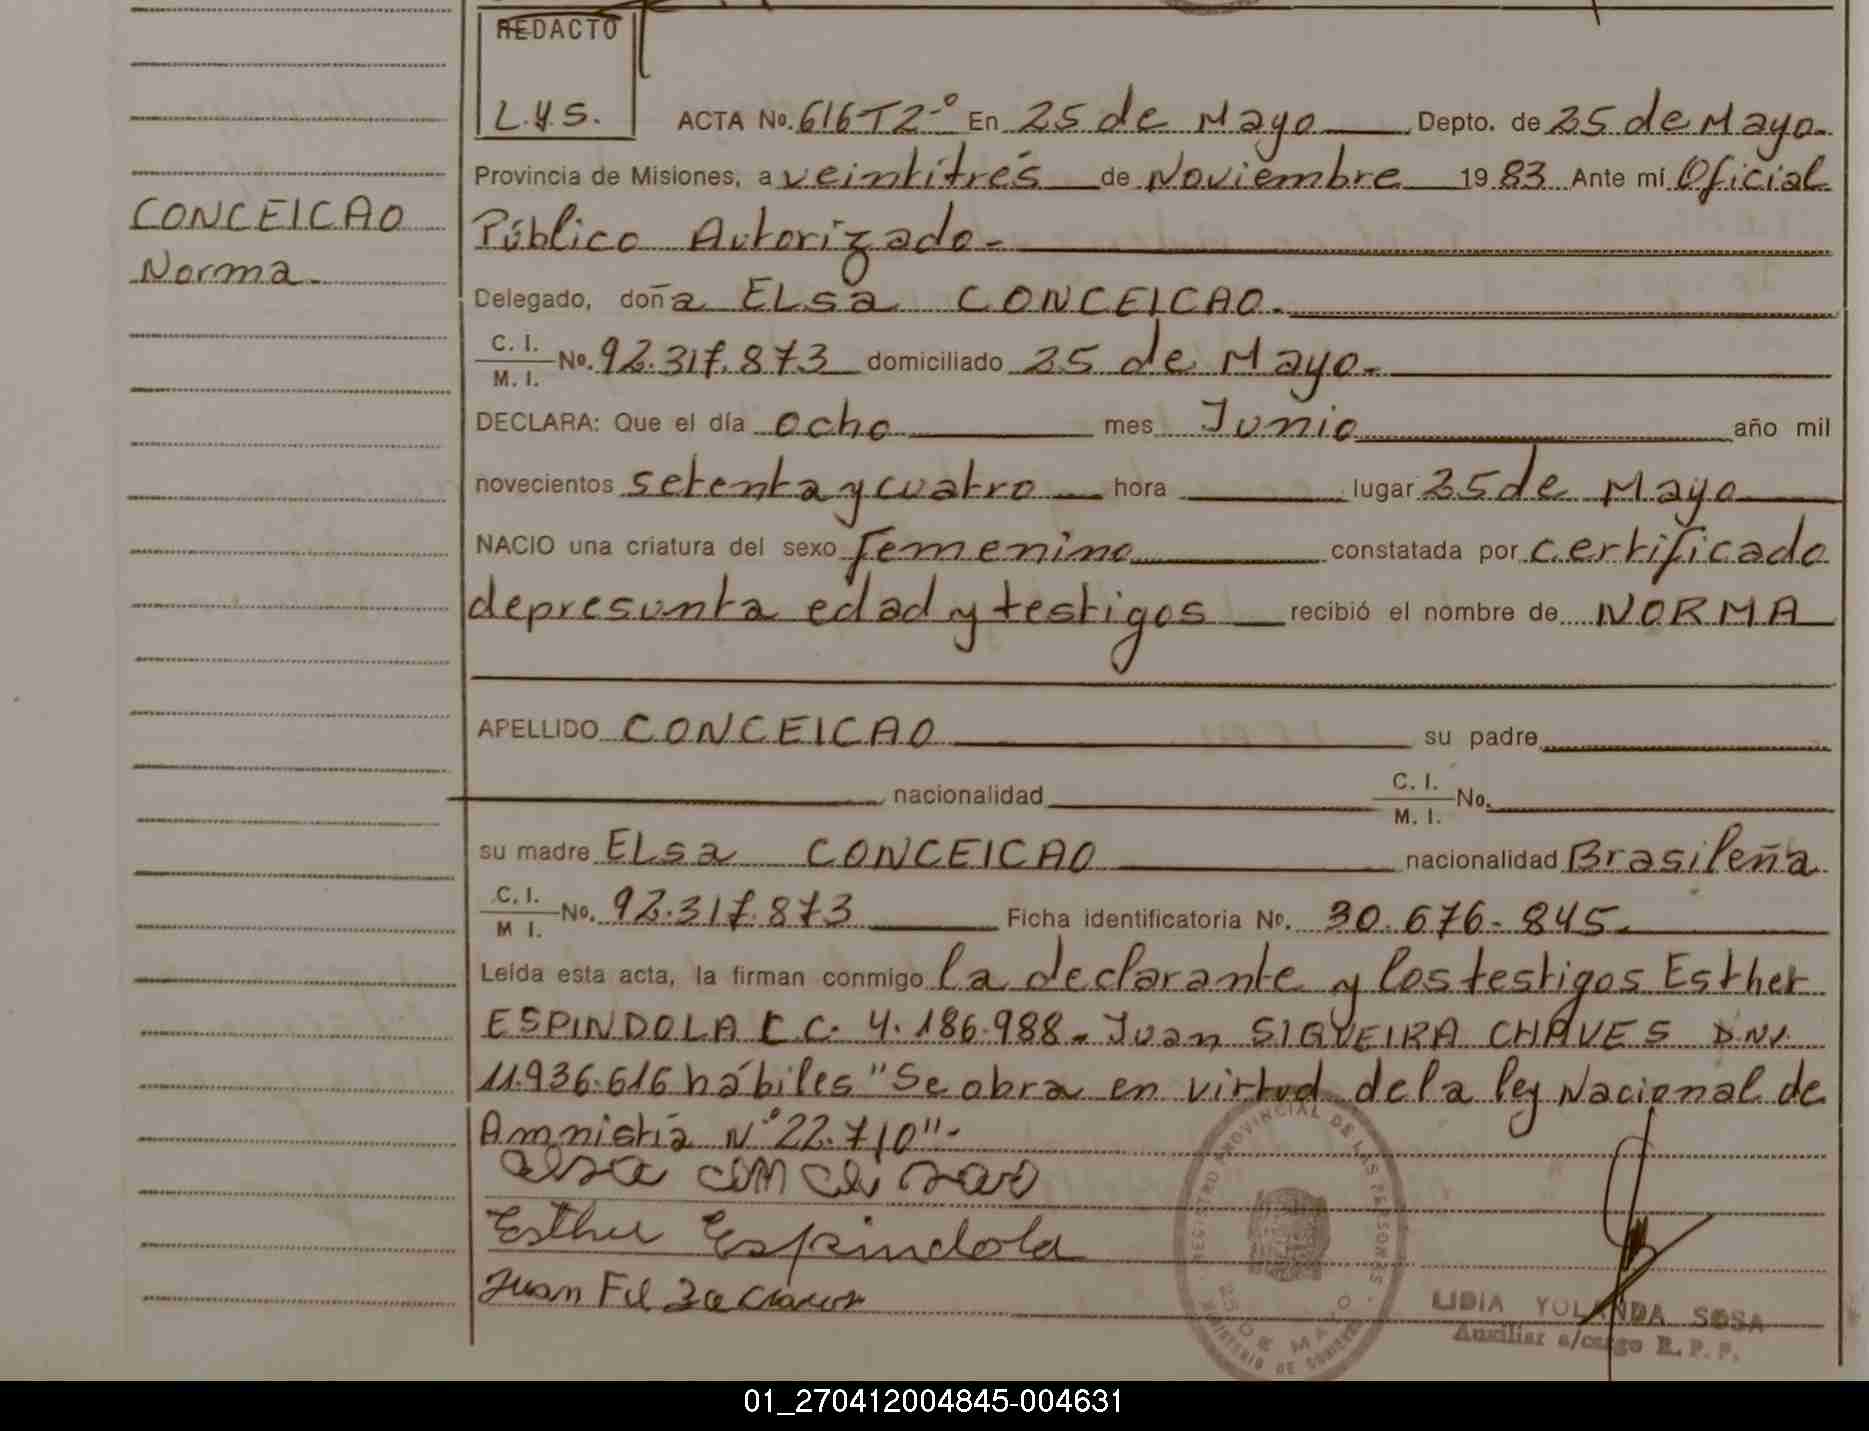 REDACTO
L.Y.S.
ACTA No. 616T2º En 25 de Mayo Depto. de 25 de Mayo.
Provincia de Misiones, a veintitrés de Noviembre 1983 Ante mí Oficial
CONCEICAO
Público Autorizado.
Norma
Delegado, doña ELsa CONCEICAO.
C. I.
M. I. No. 92.317.873 domiciliado 25 de Mayo.
DECLARA: Que el día ocho mes Junio año mil
novecientos setenta y cuatro hora lugar 25 de Mayo
NACIO una criatura del sexo femenino constatada por certificado
de presunta edad y testigos recibió el nombre de NORMA
APELLIDO CONCEICAO su padre
nacionalidad C. I. M. I. No.
su madre ELsa CONCEICAO nacionalidad Brasileña
C. I.
M I. No. 92.317.873 Ficha identificatoria No. 30.676.845.
Leída esta acta, la firman conmigo la declarante y los testigos Esther
ESPINDOLA L C. 4.186.988. Juan SIQUEIRA CHAVES D.N.I.
11.936.616 hábiles "Se obra en virtud de la ley Nacional de
Amnistía Nº 22.710".
Esther Espindola
Juan
REGISTRO PROVINCIAL DE LAS PERSONAS
25 DE MAYO
MINISTERIO DE GOBIERNO
LIDIA YOLANDA SOSA
Auxiliar a/cargo R. P. P.
01_270412004845-004631